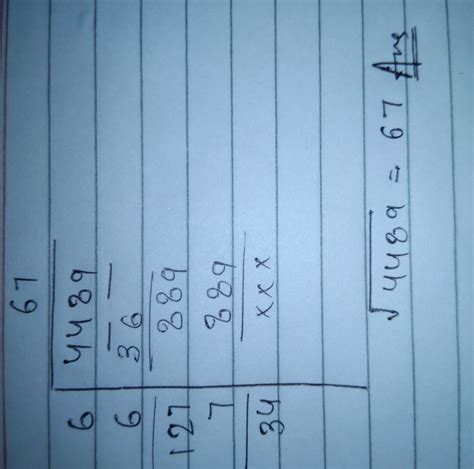 67
6 4489
6 36
127 889
7 889
34 xxx
√4489 = 67 Ans